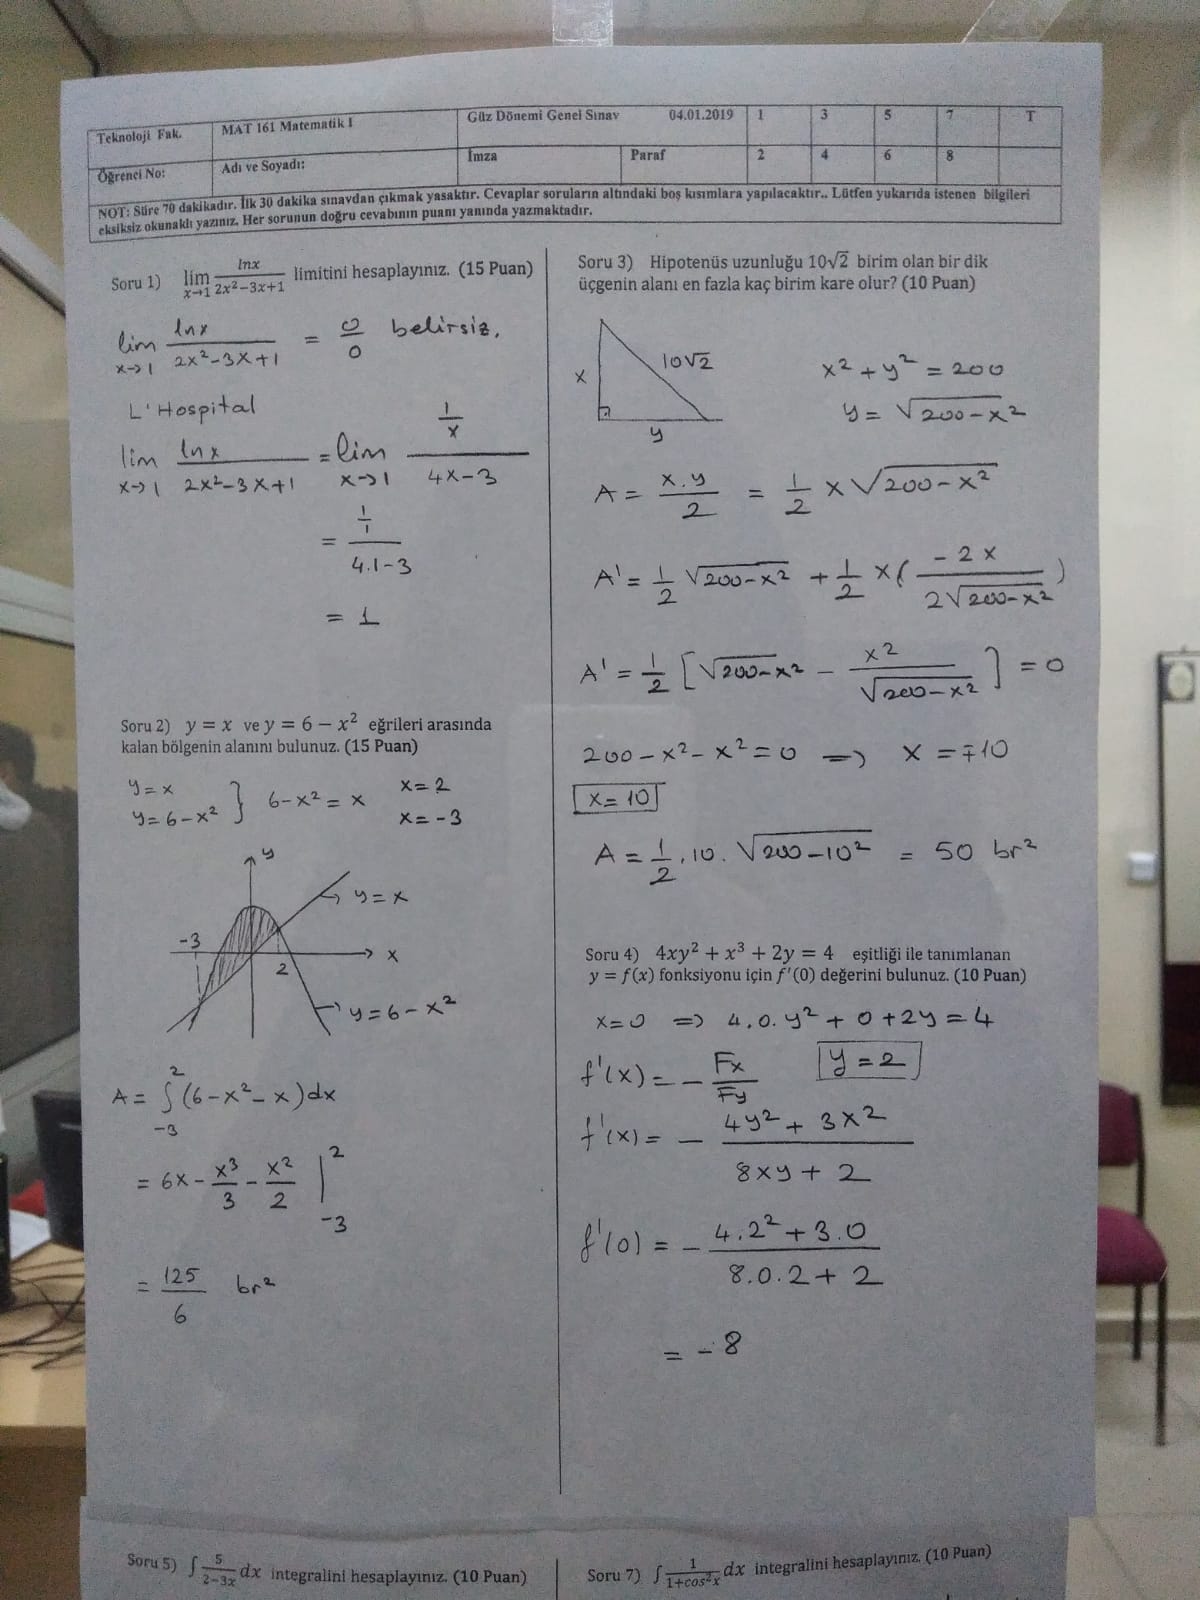 Teknoloji Fak. MAT 161 Matematik I Güz Dönemi Genel Sınav 04.01.2019 1 3 5 7 T
Öğrenci No: Adı ve Soyadı: İmza Paraf 2 4 6 8
NOT: Süre 70 dakikadır. İlk 30 dakika sınavdan çıkmak yasaktır. Cevaplar soruların altındaki boş kısımlara yapılacaktır.. Lütfen yukarıda istenen bilgileri
eksiksiz okunaklı yazınız. Her sorunun doğru cevabının puanı yanında yazmaktadır.
Soru 1) lim x→1 lnx / 2x²−3x+1 limitini hesaplayınız. (15 Puan)
lim x→1 lnx / 2x²−3x+1 = 0/0 belirsiz.
L'Hospital
lim x→1 lnx / 2x²−3x+1 = lim x→1 1/x / 4x−3
= 1/1 / 4.1−3
= 1
Soru 2) y = x ve y = 6 − x² eğrileri arasında
kalan bölgenin alanını bulunuz. (15 Puan)
y=x
y=6−x² } 6−x² = x
x=2
x=−3
y
y=x
−3
x
2
y=6−x²
A = ∫₋₃² (6−x²−x)dx
= 6x − x³/3 − x²/2 |₋₃²
= 125/6 br²
Soru 3) Hipotenüs uzunluğu 10√2 birim olan bir dik
üçgenin alanı en fazla kaç birim kare olur? (10 Puan)
x
10√2
y
x² + y² = 200
y = √200−x²
A = x.y/2 = 1/2 x √200−x²
A' = 1/2 √200−x² + 1/2 x( −2x / 2√200−x² )
A' = 1/2 [ √200−x² − x² / √200−x² ] = 0
200−x²−x²=0 ⇒ x = ∓10
x=10
A = 1/2 .10. √200−10² = 50 br²
Soru 4) 4xy² + x³ + 2y = 4 eşitliği ile tanımlanan
y = f(x) fonksiyonu için f'(0) değerini bulunuz. (10 Puan)
x=0 ⇒ 4.0.y² + 0 +2y = 4
f'(x) = − Fx/Fy y=2
f'(x) = − 4y² + 3x² / 8xy + 2
f'(0) = − 4.2² + 3.0 / 8.0.2 + 2
= −8
Soru 5) ∫ 5/2−3x dx integralini hesaplayınız. (10 Puan)
Soru 7) ∫ 1/1+cos²x dx integralini hesaplayınız. (10 Puan)